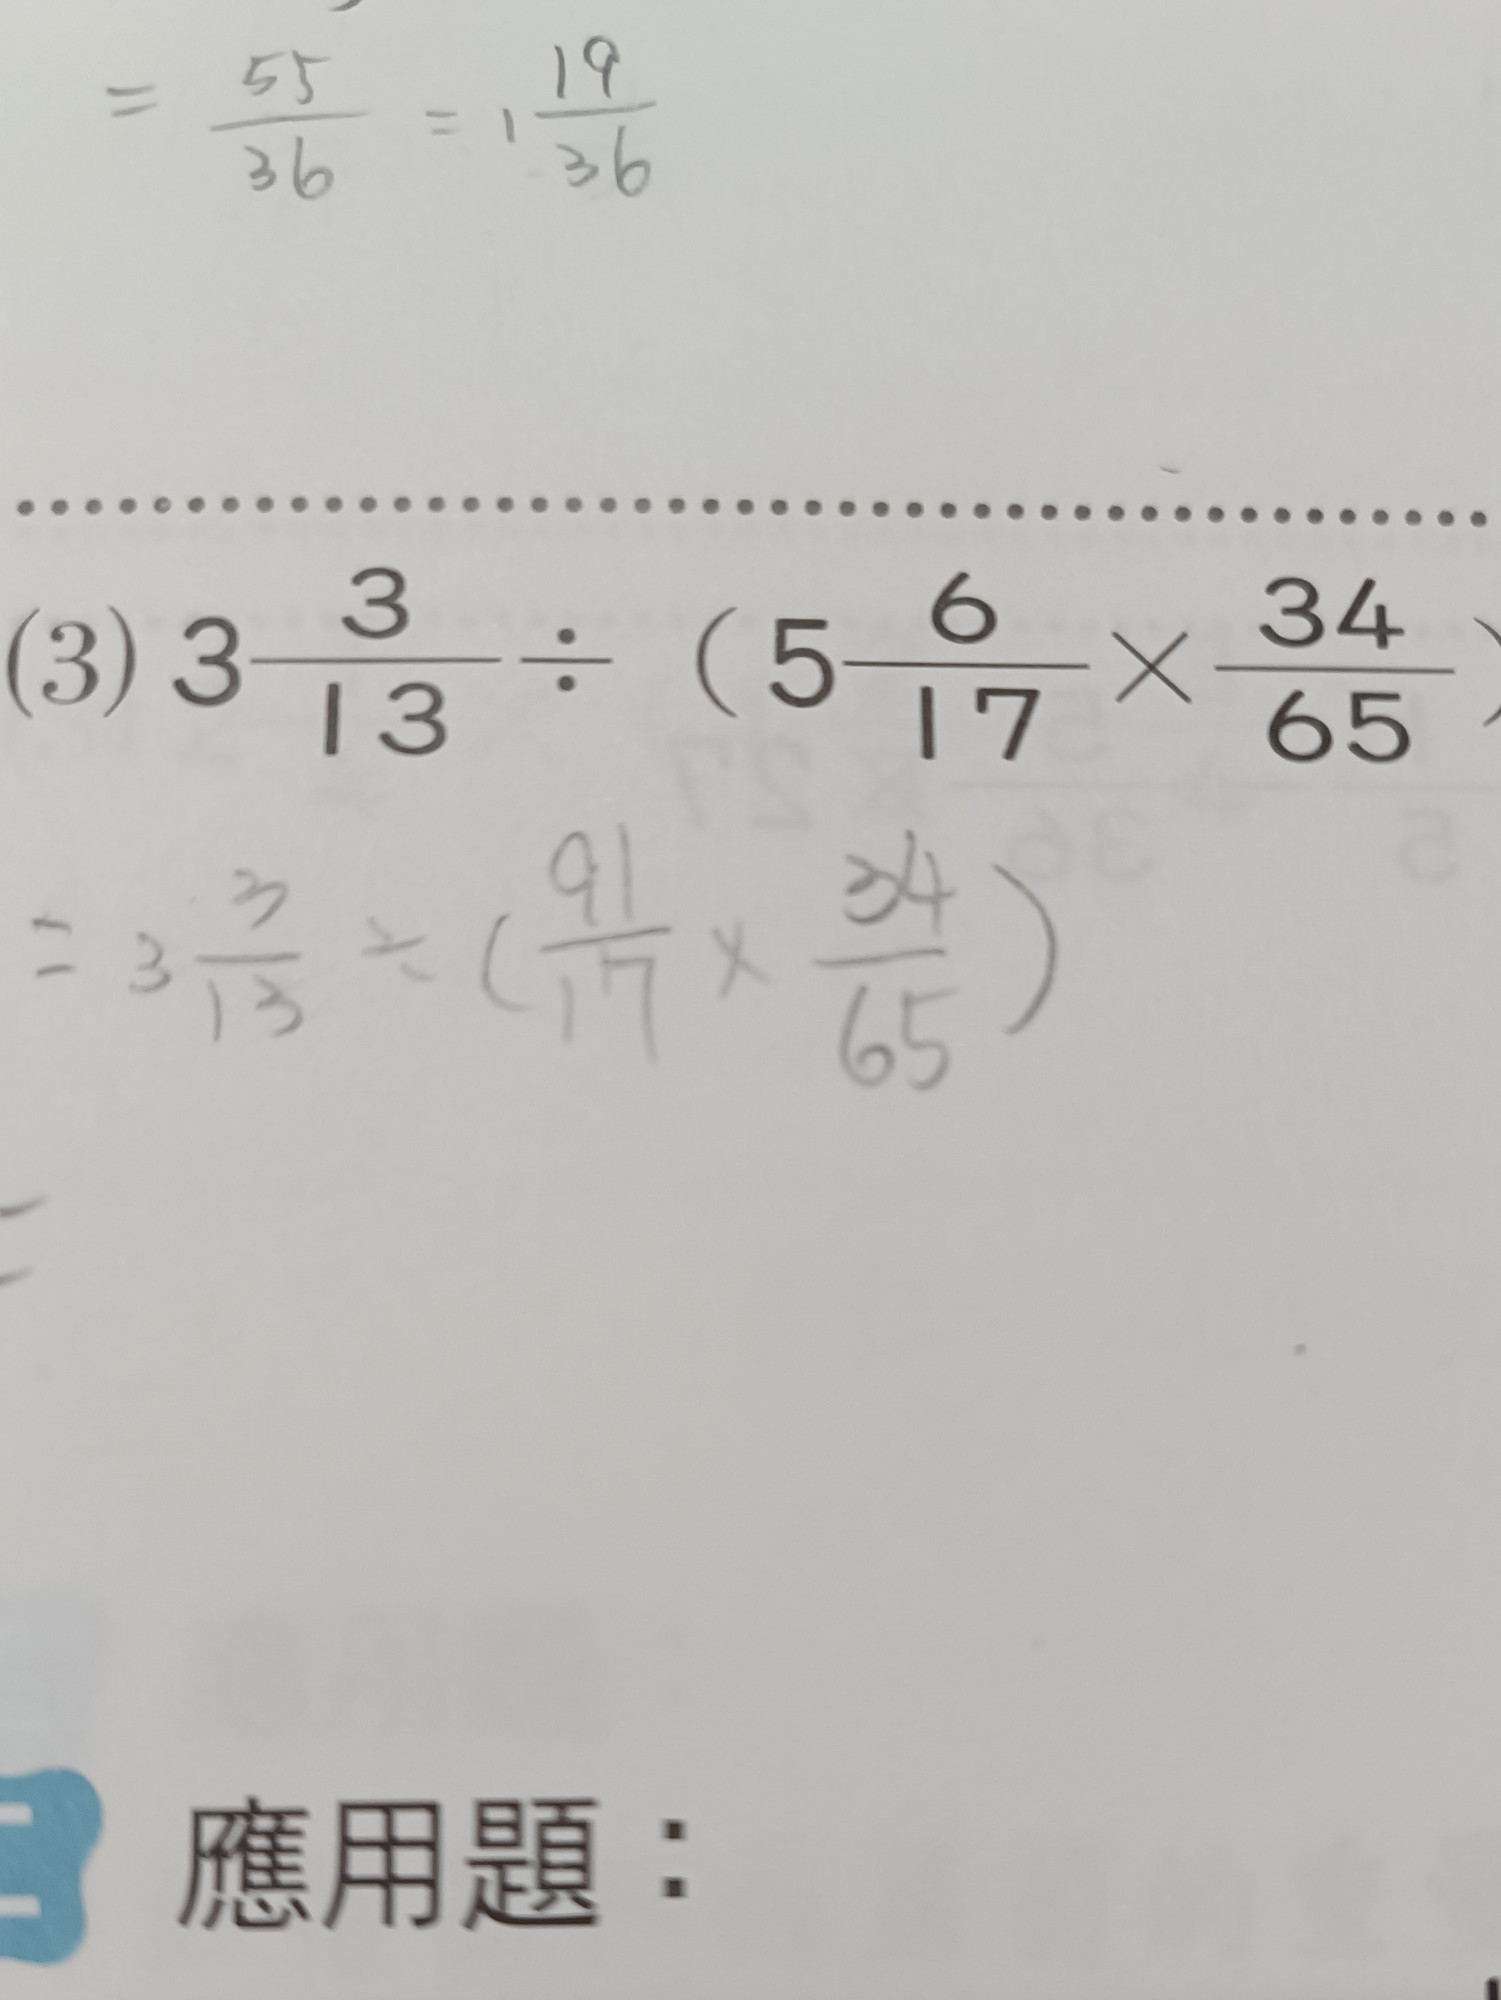 = 55/36 = 1 19/36
(3) 3 3/13 ÷ (5 6/17 × 34/65)
= 3 3/13 ÷ (91/17 × 34/65)
=
應用題：